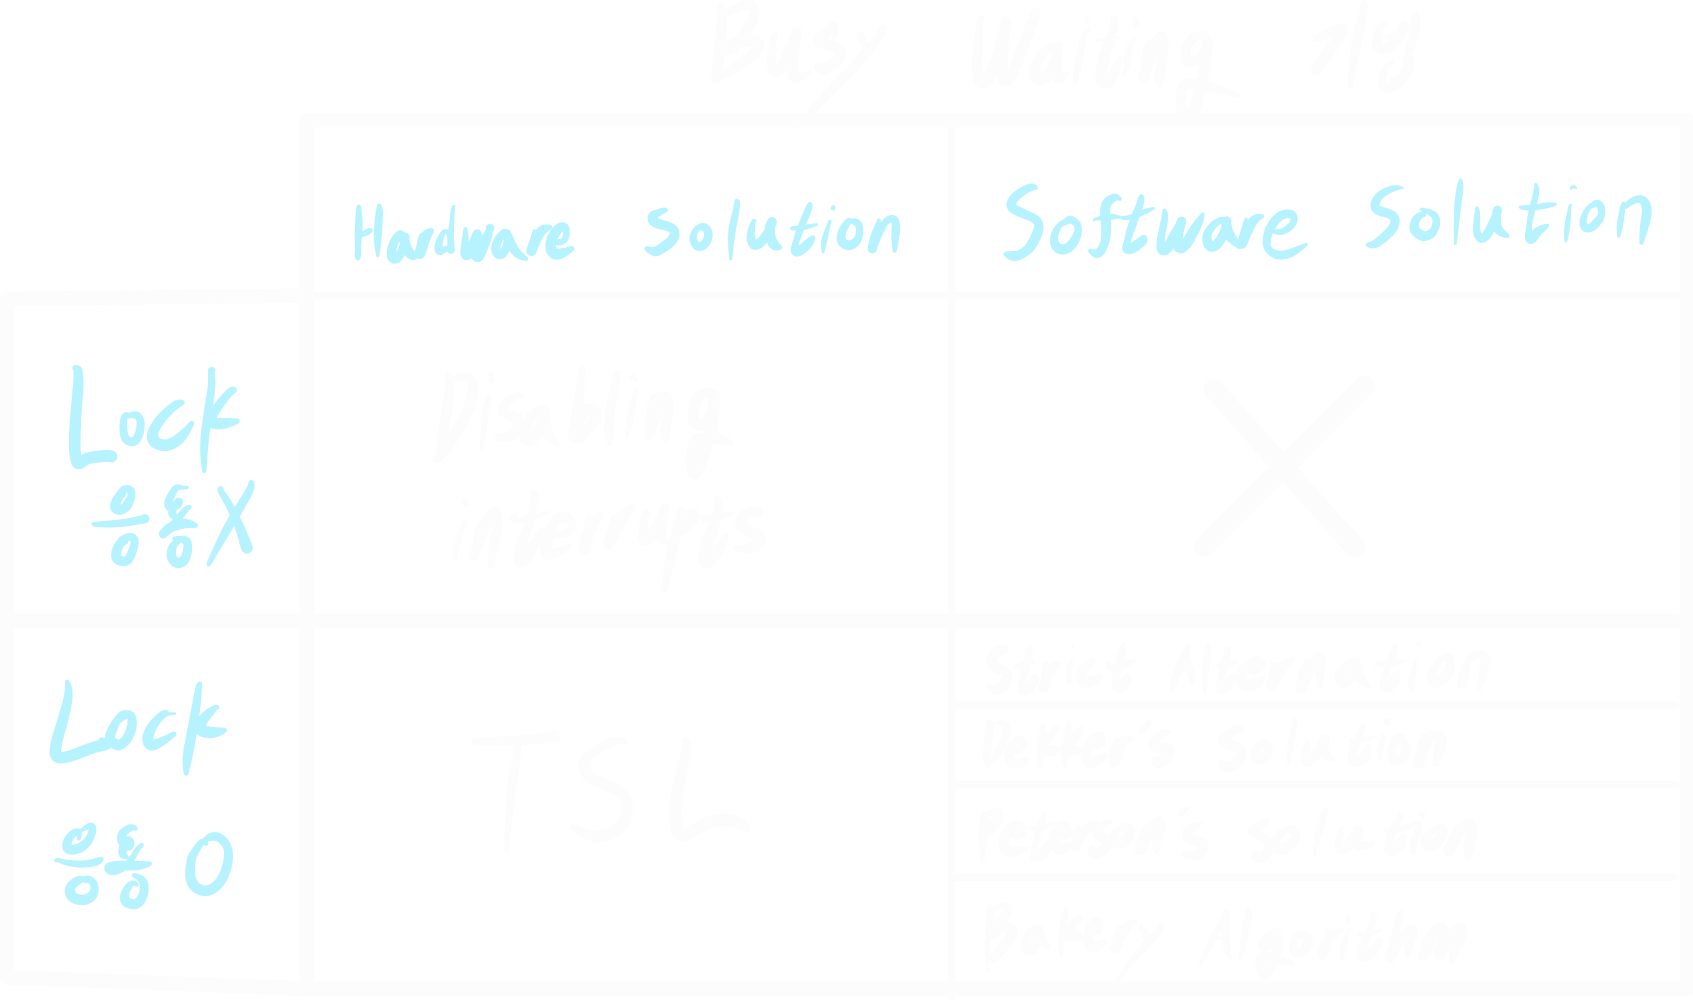 Busy Waiting 기법
Hardware Solution
Software Solution
Lock
응용X
Disabling
interrupts
X
Lock
응용 O
TSL
Strict Alternation
Dekker's solution
Peterson's solution
Bakery Algorithm